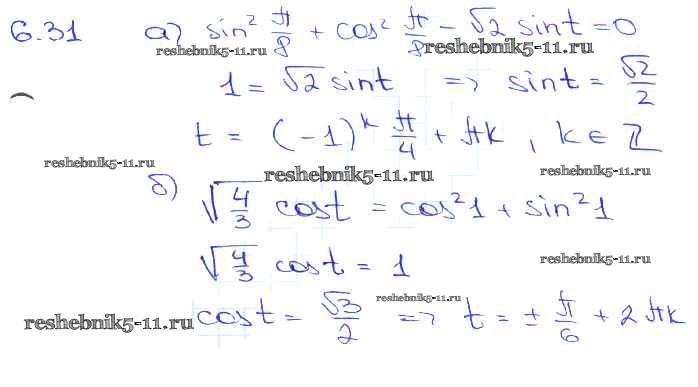 6.31 а) sin² π/8 + cos² π/8 - √2 sin t = 0
reshebnik5-11.ru reshebnik5-11.ru
1 = √2 sin t => sin t = √2/2
t = (-1)^k π/4 + πk, k ∈ ℤ
reshebnik5-11.ru reshebnik5-11.ru reshebnik5-11.ru
б) √(4/3) cos t = cos² 1 + sin² 1
√(4/3) cos t = 1 reshebnik5-11.ru
reshebnik5-11.ru reshebnik5-11.ru
cos t = √3/2 => t = ± π/6 + 2πk